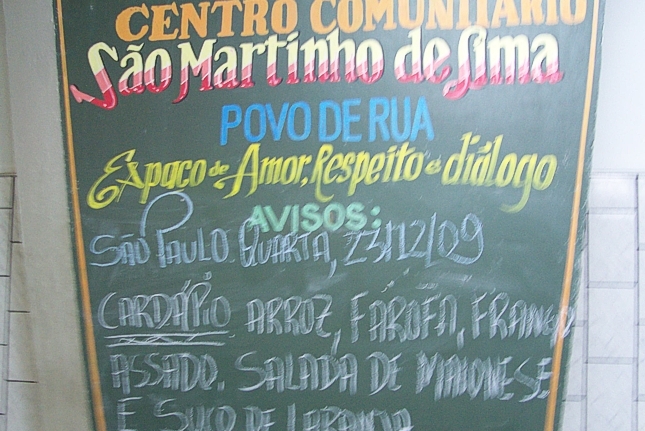 CENTRO COMUNITÁRIO
São Martinho de Lima
POVO DE RUA
Espaço de Amor, Respeito e diálogo
AVISOS:
SÃO PAULO. QUARTA, 23/12/09
CARDÁPIO ARROZ, FAROFA, FRANGO
ASSADO. SALADA DE MAIONESE
E SUCO DE LARANJA